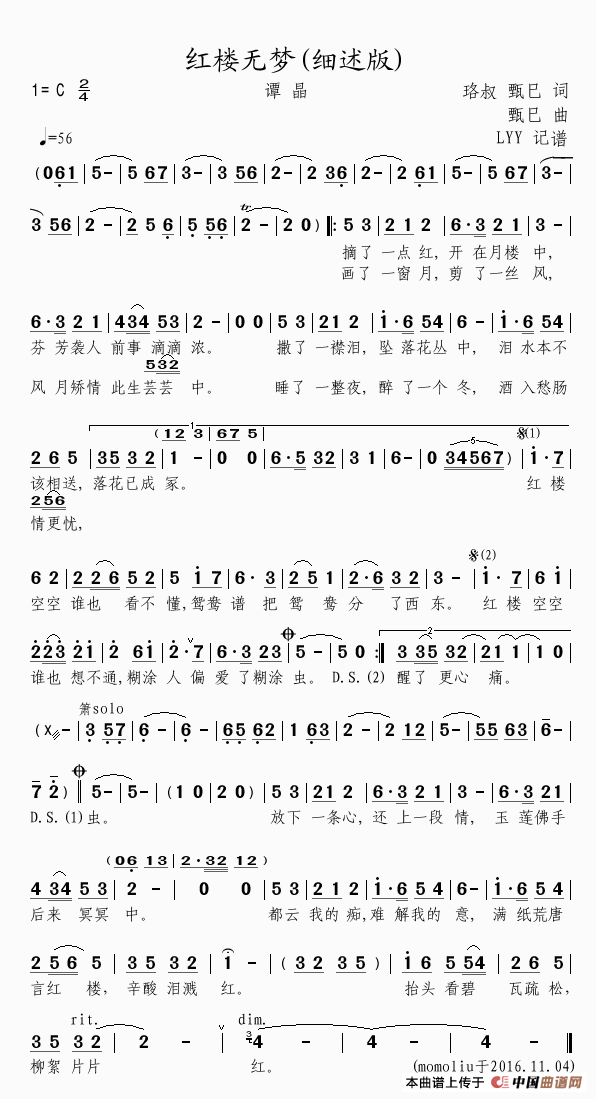 红楼无梦(细述版)
1= C 2/4 谭 晶 珞叔 甄巳 词
甄巳 曲
♩=56 LYY 记谱
(061 | 5- | 5 67 | 3- | 3 56 | 2- | 2 36 | 2- | 2 61 | 5- | 5 67 | 3- |
3 56 | 2 - | 2 5 6 | 5 56 | tr 2 - | 2 0 ) ‖: 5 3 | 2 1 2 | 6·3 2 1 | 3 - |
摘了 一点 红, 开 在月楼 中,
画了 一窗 月, 剪 了一丝 风,
6·3 2 1 | 434 53 | 2 - | 0 0 | 5 3 | 21 2 | i·6 54 | 6 - | i·6 54 |
芬 芳袭人 前事 滴滴 浓。 撒了 一襟泪, 坠 落花丛 中, 泪 水本不
532
风 月矫情 此生芸芸 中。 睡了 一整夜, 醉 了一个 冬, 酒 入愁肠
1 (12 3 | 67 5 |
2 6 5 | 35 3 2 | 1 - | 0 0 | 6·5 32 | 3 1 | 6- | 0 34567 5 ) | 𝄋(1) i·7 |
该相送, 落花已成 冢。 红 楼
256
情更忧,
6 2 | 2 26 5 2 | 5 i7 | 6· 3 | 25 1 | 2·6 3 2 | 3 - | 𝄋(2) i· 7 | 6 i |
空空 谁也 看不 懂, 鸳鸯 谱 把 鸳 鸯 分 了西 东。 红 楼 空空
223 2i | 2 6i | 2·7 | 6·3 23 | 5 - | 5 0 :‖ 2 3 35 32 | 21 1 | 1 0 |
谁也 想不通, 糊涂 人 偏 爱 了糊涂 虫。 D.S.(2) 醒了 更心 痛。
箫solo
(X - | 3 57 | 6 - | 6 - | 65 62 | 1 63 | 2 - | 2 12 | 5 - | 55 63 | 6- |
7 2 ) ‖ 5- | 5- | (1 0 | 2 0 ) | 5 3 | 21 2 | 6·3 21 | 3 - | 6·3 2 1 |
D.S.(1)虫。 放下 一条心, 还 上一段 情, 玉 莲佛手
(06 13 | 2·32 12 )
4 34 5 3 | 2 - | 0 0 | 5 3 | 2 1 2 | i·6 5 4 | 6- | i·6 5 4 |
后来 冥冥 中。 都云 我的 痴, 难 解我的 意, 满 纸荒唐
2 56 5 | 35 35 | i - | ( 32 35 ) | i 6 5 54 | 2 6 5 |
言红 楼, 辛酸 泪溅 红。 抬头 看碧 瓦疏 松,
rit. dim.
3 5 3 2 | 2 - | 2 - | 3 4 - | 4 - | 4 - ‖
柳絮 片片 红。 (momoliu于2016.11.04)
本曲谱上传于 中国曲谱网